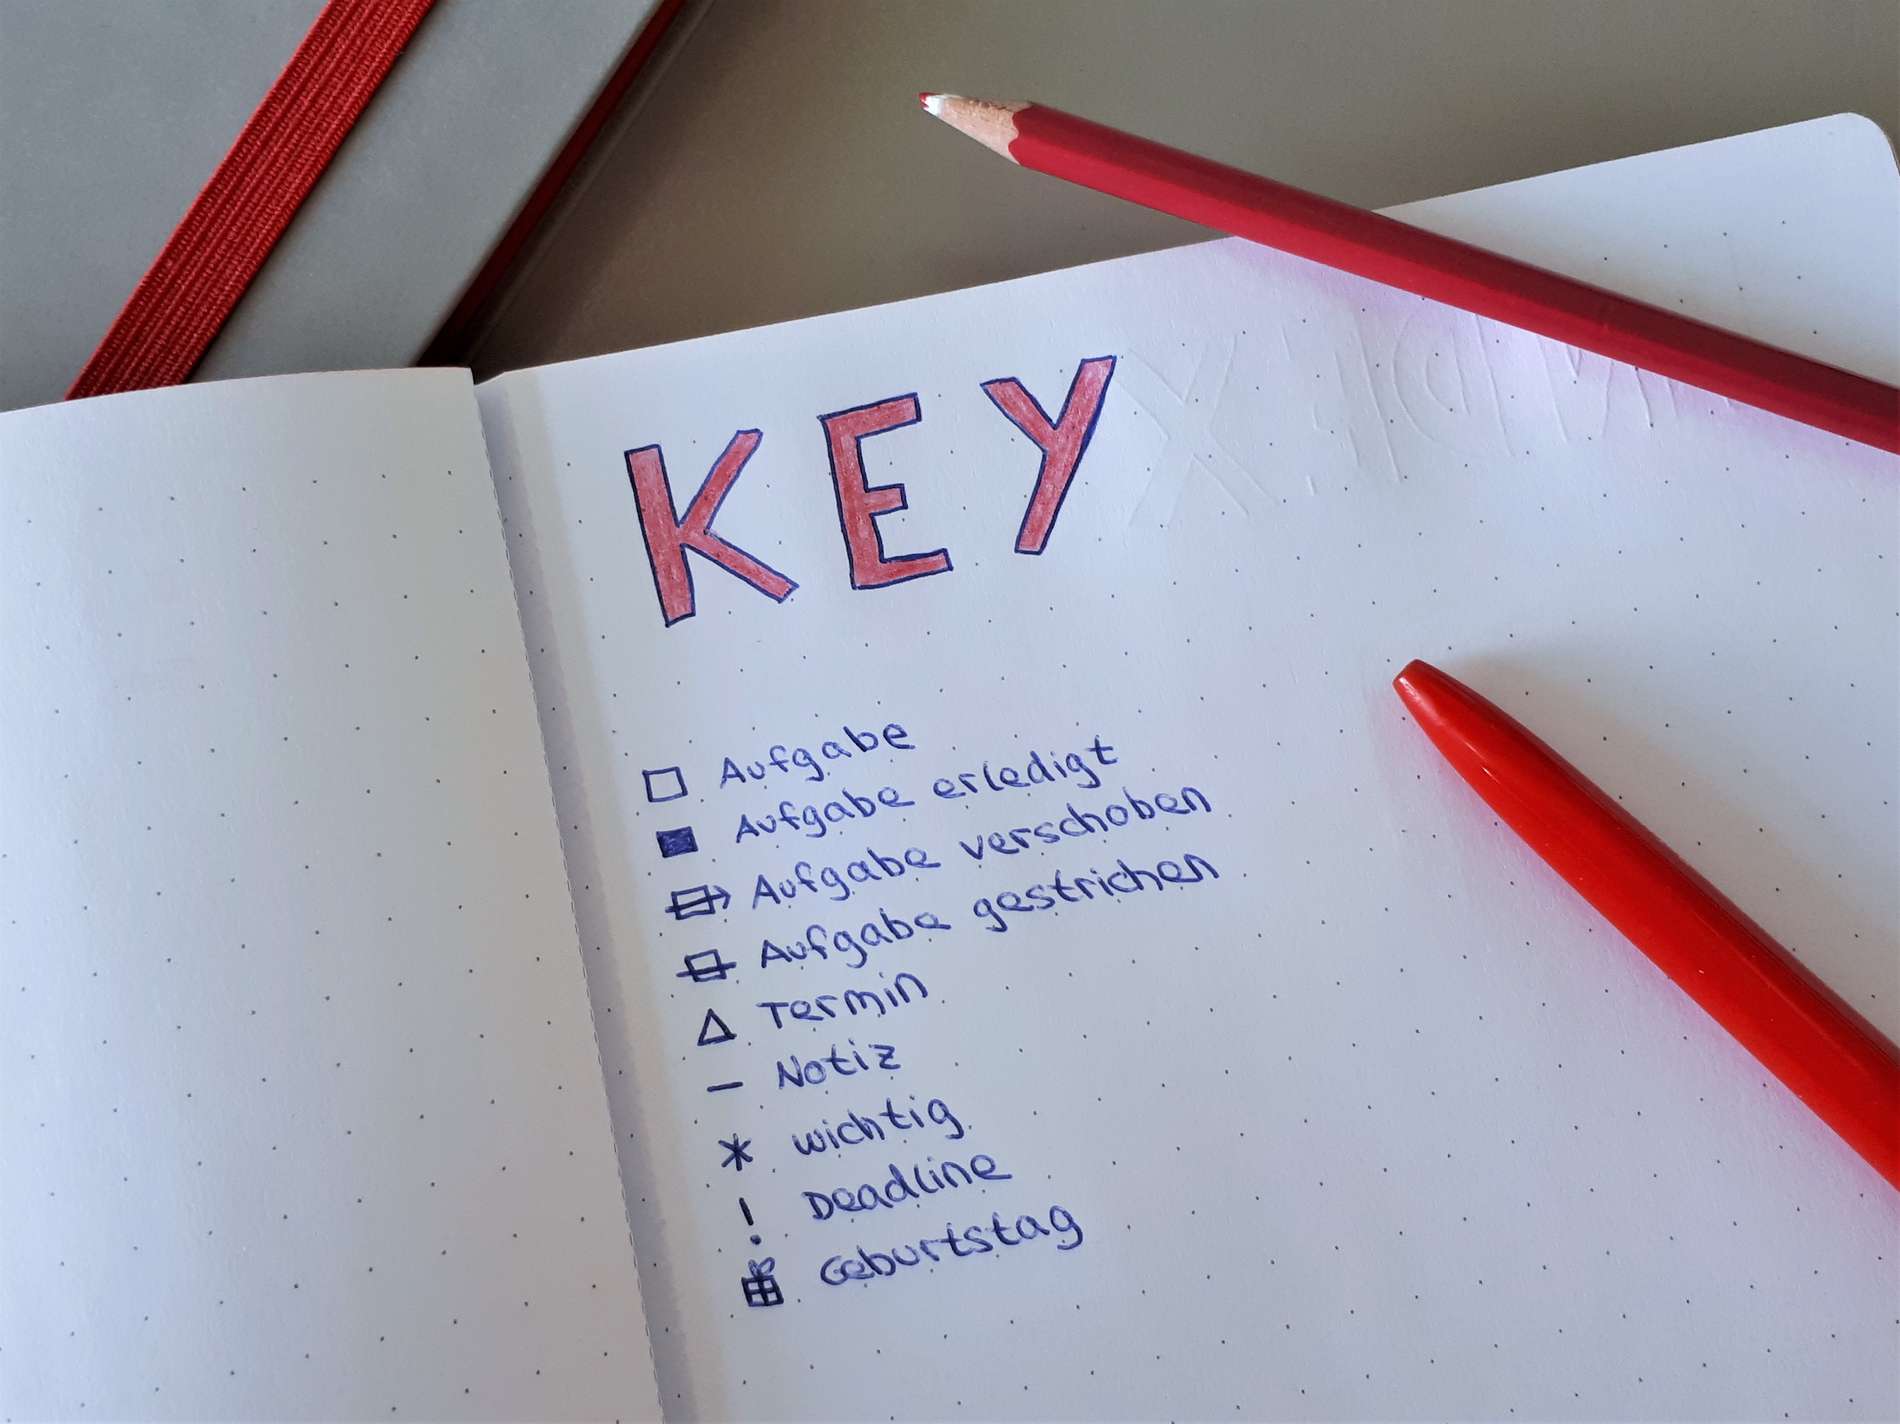 KEY
□ Aufgabe
■ Aufgabe erledigt
Aufgabe verschoben
Aufgabe gestrichen
△ Termin
– Notiz
* wichtig
! Deadline
Geburtstag